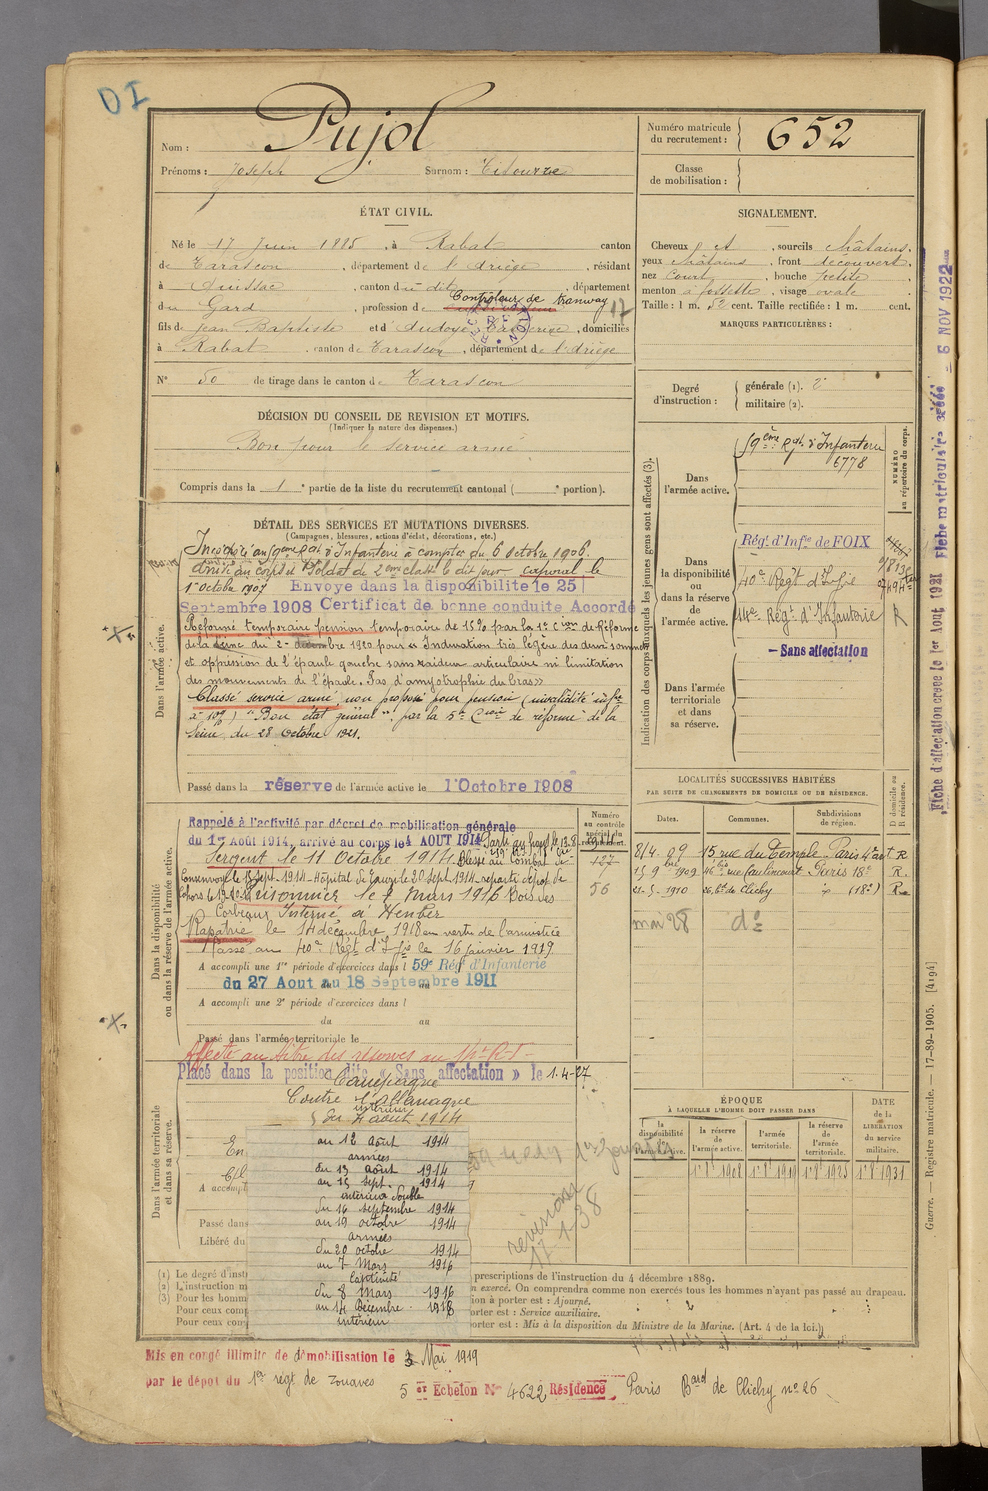 DI
Nom : Pujol
Prénoms : Joseph Surnom :
Numéro matricule du recrutement : 652
Classe de mobilisation :
ÉTAT CIVIL.
Né le 17 Juin 1885, à Rabat canton
de Tarascon, département de l'Ariège, résidant
à Quissac, canton du dit, département
du Gard, profession de Contrôleur de tramway
17
fils de Jean Baptiste et d' domiciliés
à Rabat, canton de Tarascon, département de l'Ariège
N° 50 de tirage dans le canton de Tarascon
SIGNALEMENT.
Cheveux sourcils châtains.
yeux châtains, front découvert,
nez court, bouche petite,
menton à fossette, visage ovale.
Taille : 1 m. 52 cent. Taille rectifiée : 1 m. cent.
MARQUES PARTICULIÈRES :
Degré d'instruction : générale (1). 2
militaire (2).
DÉCISION DU CONSEIL DE REVISION ET MOTIFS.
(Indiquer la nature des dispenses.)
Bon pour le service armé
Compris dans la 1 e partie de la liste du recrutement cantonal ( e portion).
DÉTAIL DES SERVICES ET MUTATIONS DIVERSES.
(Campagnes, blessures, actions d'éclat, décorations, etc.)
Dans l'armée active.
Incorporé au 59ème Rgt d'Infanterie à compter du 6 Octobre 1906.
Arrivé au corps et Soldat de 2ème classe le dit jour caporal le
1er octobre 1907 Envoyé dans la disponibilité le 25
Septembre 1908 Certificat de bonne conduite Accordé
Réformé temporaire pension temporaire de 15% par la 1re Cion de Réforme
de la Seine du 2 décembre 1920 pour « Induration très légère des deux sommets
et oppression de l'épaule gauche sans raideur articulaire ni limitation
des mouvements de l'épaule. Pas d'amyotrophie du bras »
Classé service armé, non proposé pour pension (invalidité infre
à 10%) "Bon état général", par la 5e Cion de réforme de la
Seine du 28 Octobre 1921.
Passé dans la réserve de l'armée active le 1 Octobre 1908
Indication des corps auxquels les jeunes gens sont affectés (3).
NUMÉRO au répertoire du corps.
Dans l'armée active. 59ème Rgt d'Infanterie
6778
Dans la disponibilité ou dans la réserve de l'armée active.
Régt d'Infie de FOIX
40e Régt d'Infie
Régt d'Infanterie R
- Sans affectation
Dans l'armée territoriale et dans sa réserve.
Fiche d'affectation créée le 1er Aout 1921 Fiche matricule créée 6 NOV 1922
Dans la disponibilité ou dans la réserve de l'armée active.
Numéro au contrôle spécial du recrutement.
Rappelé à l'activité par décret de mobilisation générale
du 1er Août 1914, arrivé au corps le 4 AOUT 1914
Sergent le 11 Octobre 1914 Blessé au Combat de
Consenvoye le Sept. 1914 - Hôpital de le 20 Sept. 1914 - reparti dépôt de
Cahors Prisonnier le 7 Mars 1916 Bois des
Corbeaux Interné à Heuber
Rapatrié le 14 décembre 1918 en vertu de l'armistice
Passé au 40e Régt d'Infie le 16 janvier 1919
A accompli une 1re période d'exercices dans l 59e Régt d'Infanterie
du 27 Aout au 18 Septembre 1911
A accompli une 2e période d'exercices dans l
du au
Passé dans l'armée territoriale le
Affecté au titre des réserves au
Placé dans la position dite « Sans affectation » le 1-4-27
56
LOCALITÉS SUCCESSIVES HABITÉES
PAR SUITE DE CHANGEMENTS DE DOMICILE OU DE RÉSIDENCE.
D domicile ou R résidence.
Dates. Communes. Subdivisions de région.
8/4 09 15 rue du Temple Paris 4e art R
15 9bre 1909 46bis rue Caulincourt Paris 18e R.
21.5.1910 26 Bd de Clichy (18e) R
mai 28 do
ÉPOQUE
À LAQUELLE L'HOMME DOIT PASSER DANS
la disponibilité de l'armée active.
la réserve de l'armée active.
l'armée territoriale.
la réserve de l'armée territoriale.
DATE de la LIBÉRATION du service militaire.
1er 8bre 1908 1er 8bre 1919 1er 8bre 1925 1er 8bre 1931
Dans l'armée territoriale et dans sa réserve.
Campagne
Contre l'Allemagne
intérieur
du 4 août 1914
au 12 Août 1914
armées
du 13 Août 1914
au 15 sept. 1914
intérieur double
du 16 septembre 1914
au 19 octobre 1914
armées
du 20 octobre 1914
au 7 Mars 1916
Captivité
du 8 Mars 1916
au 14 Décembre 1918
intérieur
A accompl
Passé dans
Libéré du
revisions
17 1-38
(1) Le degré d'inst prescriptions de l'instruction du 4 décembre 1889.
(2) L'instruction m n exercé. On comprendra comme non exercés tous les hommes n'ayant pas passé au drapeau.
(3) Pour les homm ion à porter est : Ajourné.
Pour ceux comp orter est : Service auxiliaire.
Pour ceux comp orter est : Mis à la disposition du Ministre de la Marine. (Art. 4 de la loi.)
Guerre. — Registre matricule. — 17-89-1905. [4194]
Mis en congé illimité de démobilisation le 3 Mai 1919
par le dépôt du 1er régt de zouaves
5 er Echelon No 4622 Résidence Paris Bard de Clichy no 26